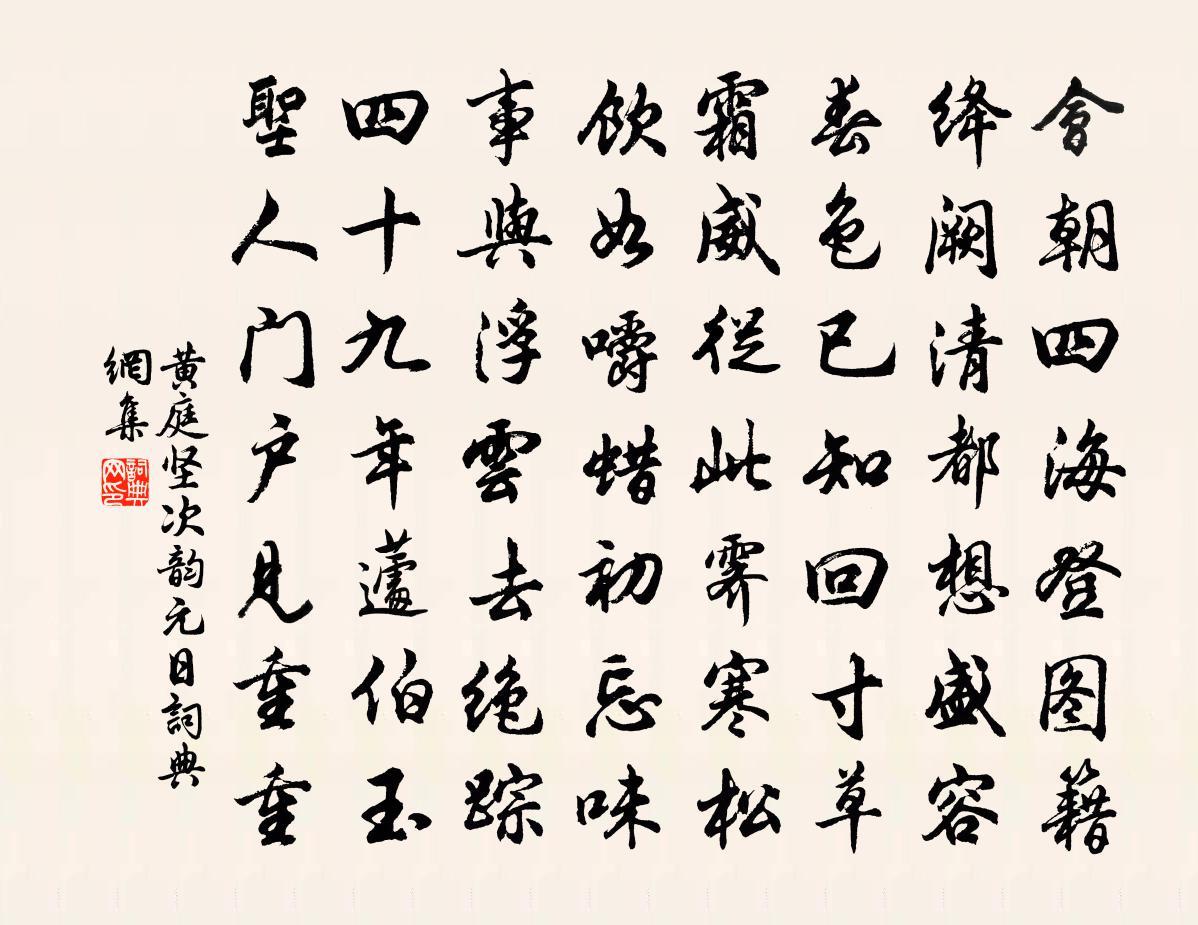 會朝四海登图籍
绛阙清都想盛容
春色已知回寸草
霜威從此霁寒松
飲如嚼蜡初忘味
事與浮雲去绝踪
四十九年蘧伯玉
聖人门户見重重
黄庭坚次韵元日詞典
網集
詞典
网印